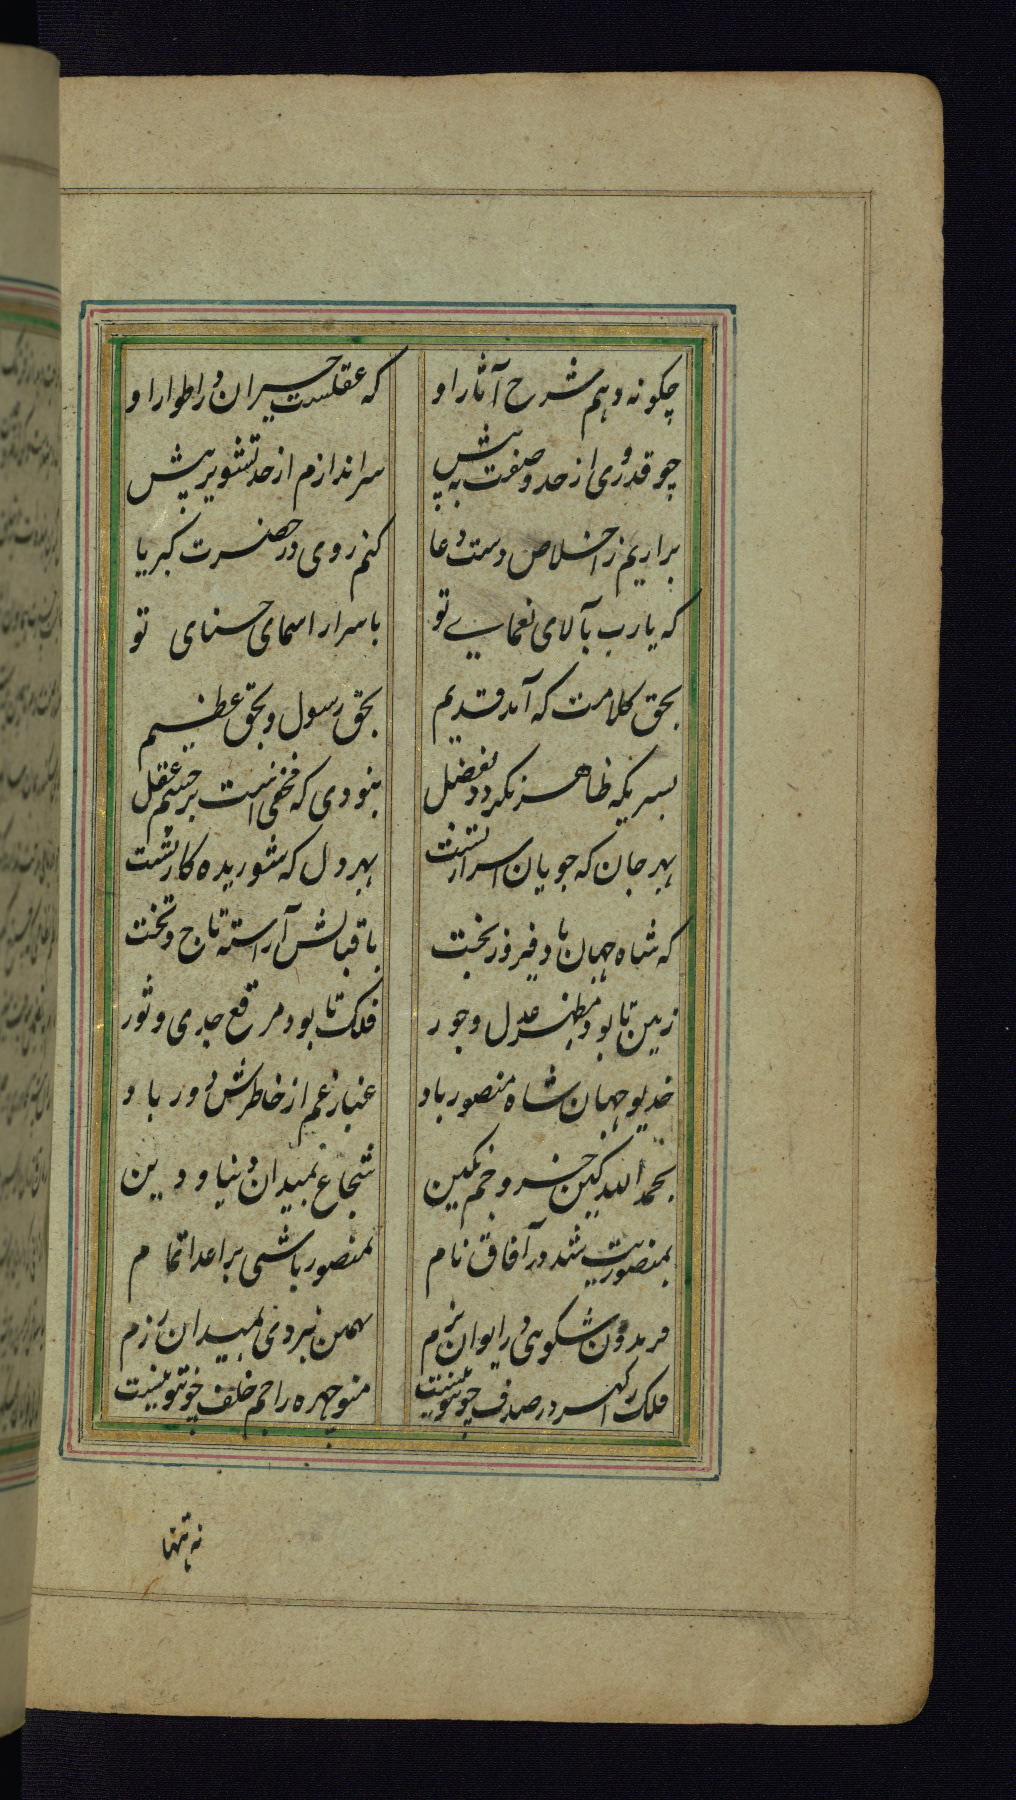 چکونه دهم شرح آثار او که عقلست حیران در اطوار او
چو قدوری از حد وصفت به پیش سراندازم از حد تشویر پیش
براریم ز اخلاص دست دعا کنم روی در حضرت کبریا
که یارب بآلای نعمایی تو باسرار اسمای حسنای تو
بحق کلامت که آمد قدیم بحق رسول و بحق عظیم
بسریکه ظاهر نکردد بفضل بنوری که مخفی است بر چشم عقل
بهر جان که جویان اسرار تست بهر دل که شوریده کار تست
که شاه جهان باد فیروزبخت باقبالش آراسته تاج و تخت
زمین تا بود مظهر عدل و جور فلک تا بود مرتع جدی و ثور
خدیو جهان شاه منصور باد غبار غم از خاطرش دور باد
بحمد الله کین خسرو جم نکین شجاع بمیدان دنیا و دین
بمنصوریت شد در آفاق نام منصور باشی بر اعدا تمام
فریدون شکوهی در ایوان بزم تهمتن نبردی بمیدان رزم
فلک را کهر در صدف چو تو نیست منوچهره را جم خلف چو تو نیست
نه تنها